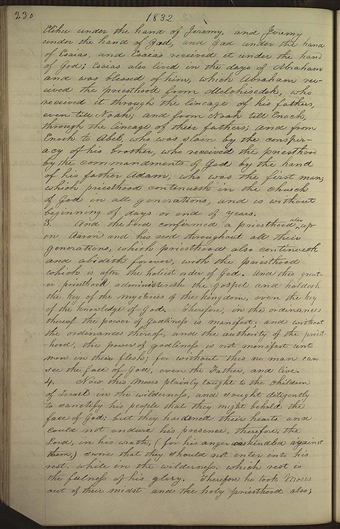 230
1832
Elihu under the hand of Jeremy, and Jeremy
under the hand of Gad, and Gad under the hand
of Esaias, and Esaias received it under the hand
of God; Esaias also lived in the days of Abraham
and was blessed of him, which Abraham re-
ceived the priesthood from Melchisedek, who
received it through the lineage of his fathers,
even till Noah; and from Noah till Enoch,
through the lineage of their fathers; and from
Enoch to Abel, who was slain by the conspir-
acy of his brother, who received the priesthood
by the commandments of God by the hand
of his father Adam, who was the first man,
which priesthood continueth in the church
of God in all generations, and is without
beginning of days or end of years.
3. And the Lord confirmed a priesthood also up
on Aaron and his seed throughout all their
generations, which priesthood also continueth
and abideth forever, with the priesthood
which is after the holiest order of God. And this great-
er priesthood administereth the gospel and holdeth
the key of the mysteries of the kingdom, even the key
of the knowledge of God. Therefore, in the ordinances
thereof the power of Godliness is manifest; and without
the ordinances thereof, and the authority of the priest
hood, the power of godliness is not manifest unto
men in their flesh; for without this no man can
see the face of God, even the Father, and live.
4. Now this Moses plainly taught to the children
of Israel in the wilderness, and sought diligently
to sanctify his people that they might behold the
face of God; but they hardened their hearts and
could not endure his presence, therefore, the
Lord, in his wrath, (for his anger was kindled against
them,) swore that they should not enter into his
rest, while in the wilderness, which rest is
the fulness of his glory. Therefore he took Moses
out of their midst and the holy priesthood also;